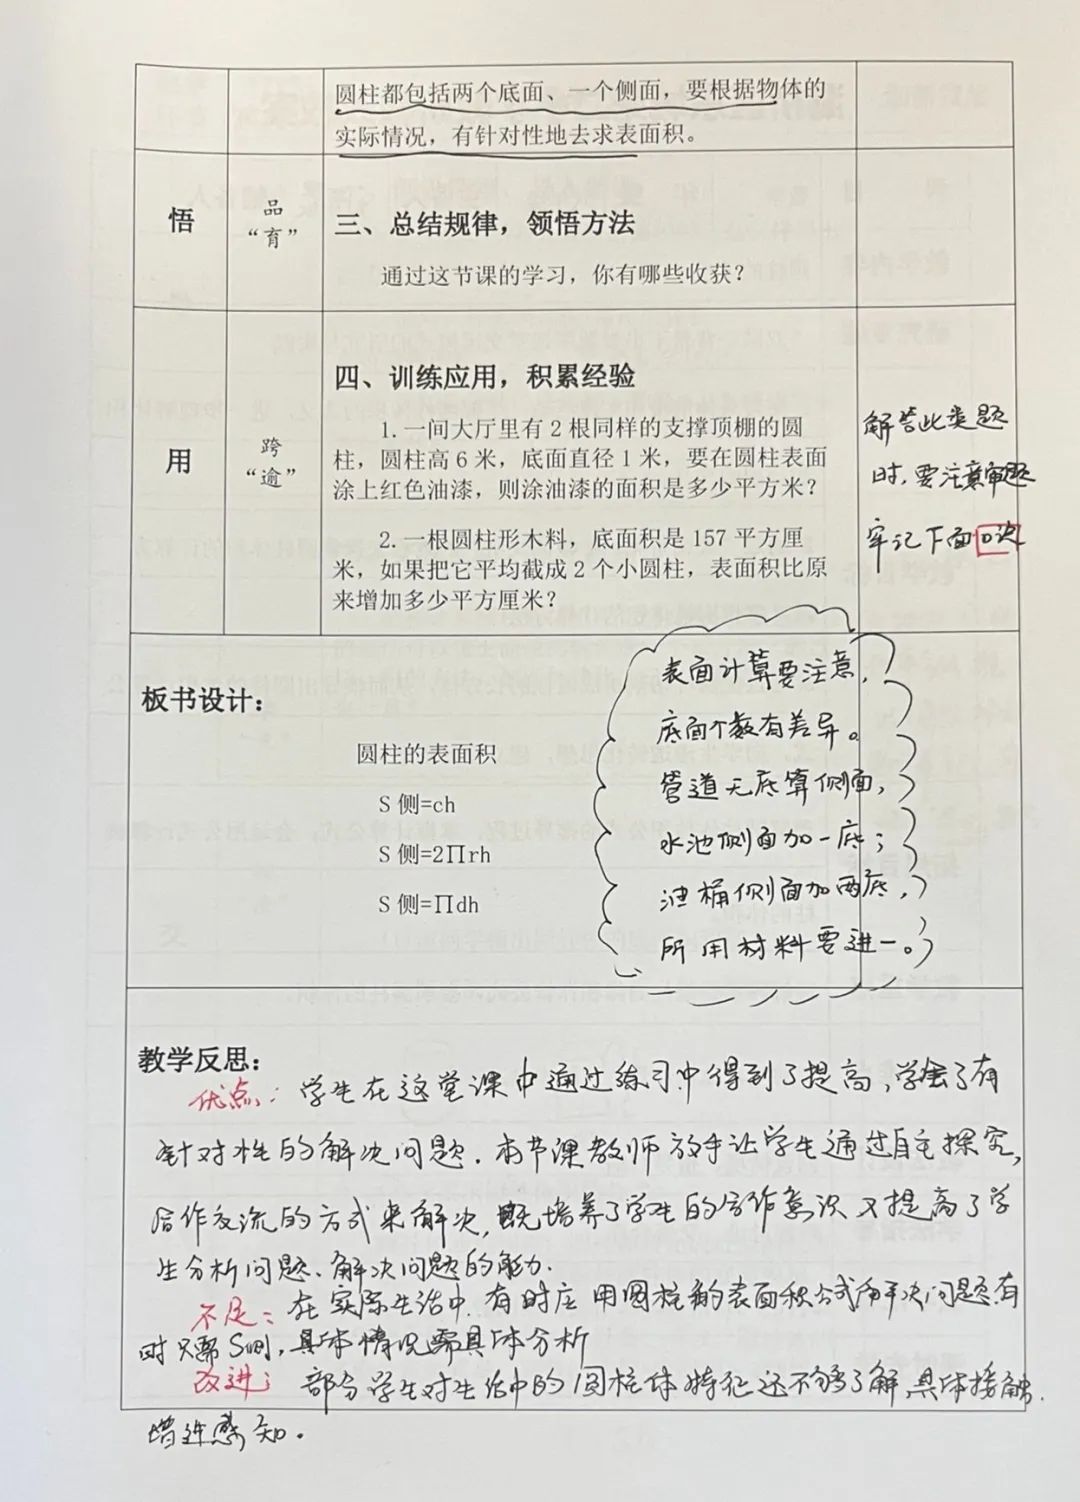 圆柱都包括两个底面、一个侧面，要根据物体的
实际情况，有针对性地去求表面积。
悟
品
“育”
三、总结规律，领悟方法
通过这节课的学习，你有哪些收获？
用
跨
“逾”
四、训练应用，积累经验
1.一间大厅里有2根同样的支撑顶棚的圆
柱，圆柱高6米，底面直径1米，要在圆柱表面
涂上红色油漆，则涂油漆的面积是多少平方米？
2.一根圆柱形木料，底面积是157平方厘
米，如果把它平均截成2个小圆柱，表面积比原
来增加多少平方厘米？
解答此类题
时，要注意审题
牢记下面口诀
板书设计：
圆柱的表面积
S侧=ch
S侧=2∏rh
S侧=∏dh
表面计算要注意，
底面个数有差异。
管道无底算侧面，
水池侧面加一底；
油桶侧面加两底，
所用材料要进一。
教学反思：
优点：学生在这堂课中通过练习中得到了提高，学会了有
针对性的解决问题．本节课教师放手让学生通过自主探究，
合作交流的方式来解决，既培养了学生的合作意识又提高了学
生分析问题、解决问题的能力．
不足：在实际生活中，有时应用圆柱的表面积公式解决问题，有
时只需S侧，具体情况需具体分析
改进：部分学生对生活中的圆柱体特征还不够了解，具体接触．
增进感知．